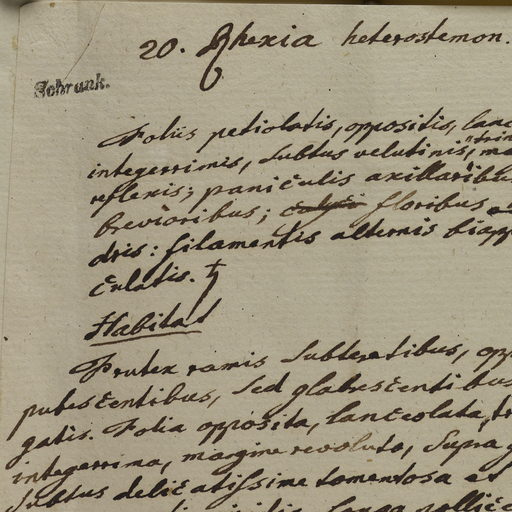 20. Rhexia heterostemon.
Schrank.
Foliis petiolatis, oppositis, lanc
integerrimis, subtus velutinis, trin ma
reflexis; paniculis axillaribus
brevioribus; calyce floribus
dris: filamentis alternis biapp
culatis.
Habitat
Frutex ramis subteretibus, opp
pubescentibus, sed glabrescentibus
gatis. Folia opposita, lanceolata, tr
integerrima, margine revoluto, supra g
subtus delicatissime tomentosa et
longa pollic